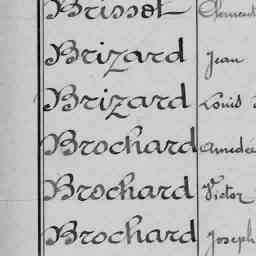 Brissot Clement
Brizard Jean
Brizard Louis
Brochard Amedée
Brochard Victor
Brochard Joseph